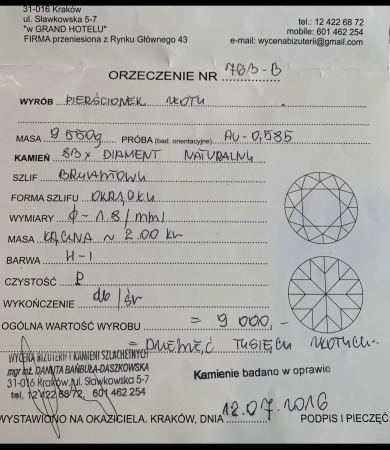 31-016 Kraków
ul. Sławkowska 5-7
"w GRAND HOTELU"
FIRMA przeniesiona z Rynku Głównego 43
tel.: 12 422 68 72
mobile: 601 462 254
e-mail: wycenabizuterii@gmail.com
ORZECZENIE NR 783-B
WYRÓB PIERŚCIONEK ZŁOTY
MASA 9.550g PRÓBA (bad. orientacyjne) AU-0,585
KAMIEŃ 83x DIAMENT NATURALNY
SZLIF BRYLANTOWY
FORMA SZLIFU OKRĄGŁY
WYMIARY ϕ-1.8/mm/
MASA ŁĄCZNA ~ 2.00 kr
BARWA H-I
CZYSTOŚĆ P
WYKOŃCZENIE db/śr
OGÓLNA WARTOŚĆ WYROBU = 9 000,-
= DZIEWIĘĆ TYSIĘCY ZŁOTYCH
WYCENA BIŻUTERII I KAMIENI SZLACHETNYCH
mgr inż. DANUTA BAŃBUŁA-DASZKOWSKA
31-016 Kraków, ul. Sławkowska 5-7
tel. 12 422 68 72, 601 462 254
Kamienie badano w oprawie
WYSTAWIONO NA OKAZICIELA. KRAKÓW, DNIA 12.07.2016 PODPIS I PIECZĘĆ